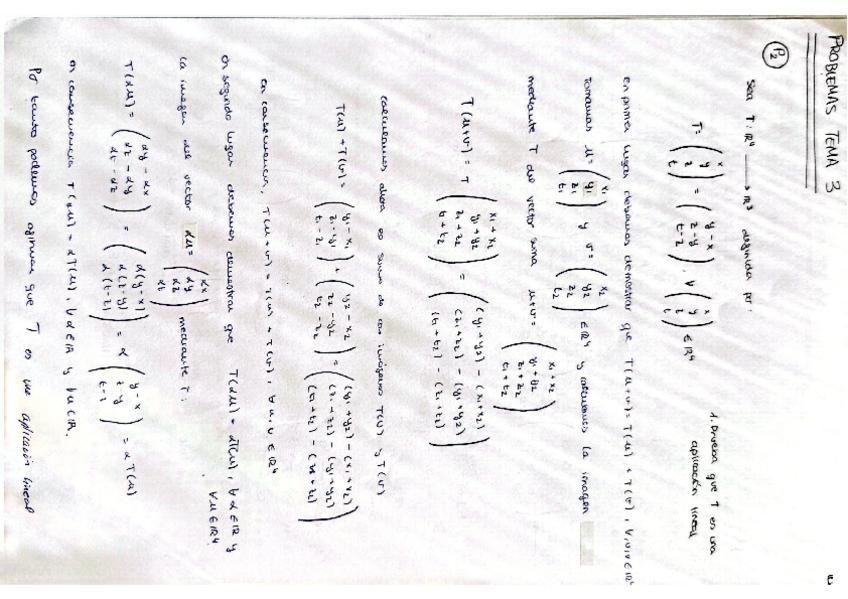 PROBLEMAS TEMA 3
P2
Sea T: ℝ⁴ → ℝ³ definida por:
T = (x y z t) = (y-x z-y t-z), ∀ (x y z t) ∈ ℝ⁴
1. Prueba que T es una
aplicación lineal
en primer lugar debemos demostrar que T(u+v) = T(u) + T(v), ∀ u, v ∈ ℝ⁴
Tomamos u = (x₁ y₁ z₁ t₁) y v = (x₂ y₂ z₂ t₂) ∈ ℝ⁴ y calculamos la imagen
mediante T del vector suma u+v = (x₁+x₂ y₁+y₂ z₁+z₂ t₁+t₂)
T(u+v) = T (x₁+x₂ y₁+y₂ z₁+z₂ t₁+t₂) = ((y₁+y₂) - (x₁+x₂) (z₁+z₂) - (y₁+y₂) (t₁+t₂) - (z₁+z₂))
calculamos ahora la suma de las imágenes T(u) y T(v)
T(u) + T(v) = (y₁-x₁ z₁-y₁ t₁-z₁) + (y₂-x₂ z₂-y₂ t₂-z₂) = ((y₁+y₂) - (x₁+x₂) (z₁+z₂) - (y₁+y₂) (t₁+t₂) - (z₁+z₂))
en consecuencia, T(u+v) = T(u) + T(v), ∀ u, v ∈ ℝ⁴
en segundo lugar debemos demostrar que T(αu) = αT(u), ∀ α ∈ ℝ y
∀ u ∈ ℝ⁴.
La imagen del vector αu = (αx αy αz αt) mediante T:
T(αu) = (αy - αx αz - αy αt - αz) = (α(y-x) α(z-y) α(t-z)) = α (y-x z-y t-z) = αT(u)
en consecuencia T(αu) = αT(u), ∀ α ∈ ℝ y ∀ u ∈ ℝ⁴.
Por tanto podemos afirmar que T es una aplicación lineal